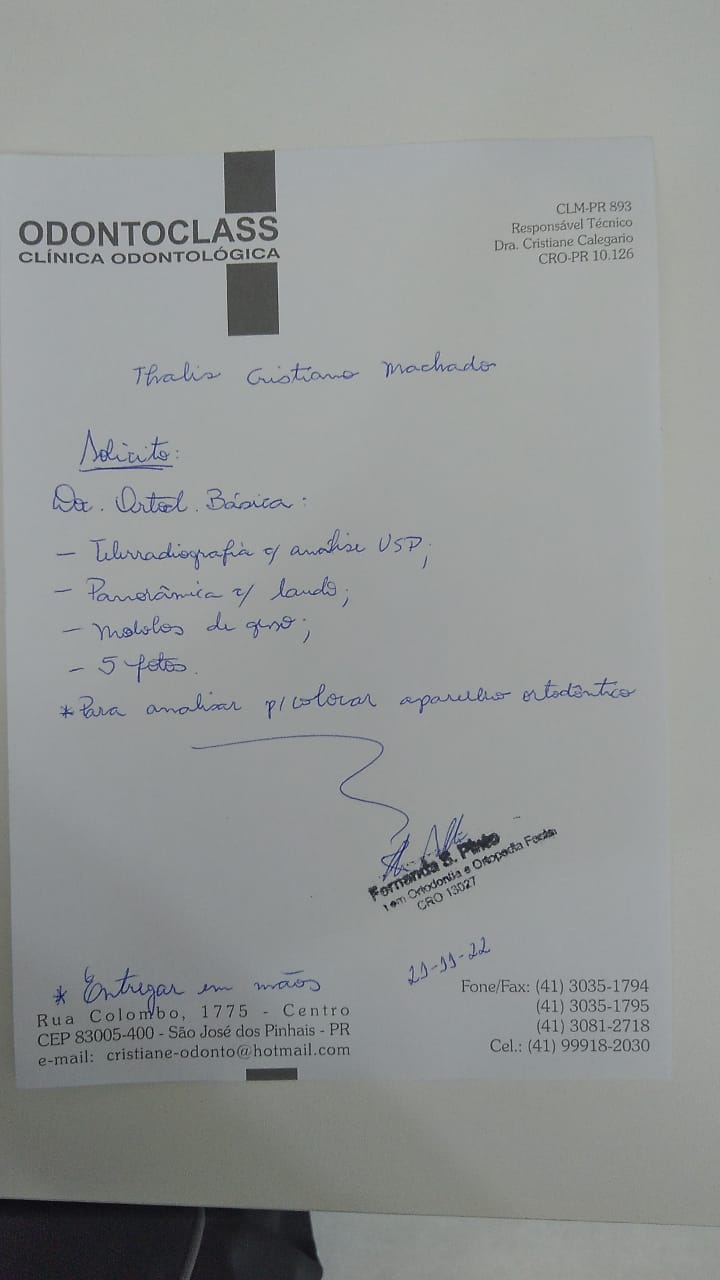 ODONTOCLASS
CLÍNICA ODONTOLÓGICA
CLM-PR 893
Responsável Técnico
Dra. Cristiane Calegario
CRO-PR 10.126
Thalis Cristiano Machado
Solicito:
Doc. Ortod. Básica:
- Telerradiografia c/ análise USP;
- Panorâmica c/ laudo;
- Modelos de gesso;
- 5 fotos.
*Para analisar p/ colocar aparelho ortodôntico
Fernanda S. Pinto
em Ortodontia e Ortopedia Facial
CRO 13027
21-11-22
* Entregar em mãos
Rua Colombo, 1775 - Centro
CEP 83005-400 - São José dos Pinhais - PR
e-mail: cristiane-odonto@hotmail.com
Fone/Fax: (41) 3035-1794
(41) 3035-1795
(41) 3081-2718
Cel.: (41) 99918-2030